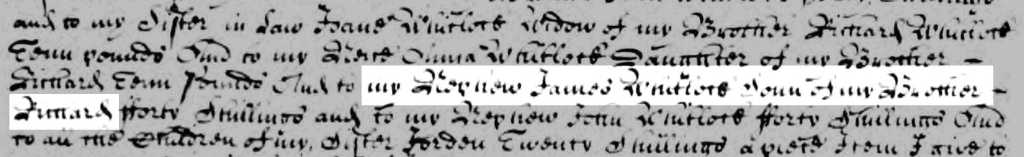 and to my Sister in Law Joane Whitlock Widow of my Brother Richard Whitlock
Tenn pounds And to my Neice Anna Whitlock Daughter of my Brother -
Richard Tenn pounds And to my Nephew James Whitlock Sonn of my Brother -
Richard fforty Shillings and to my Nephew John Whitlock fforty Shillings And
to all the Children of my Sister Jorden Twenty Shillings apiece Item I give to